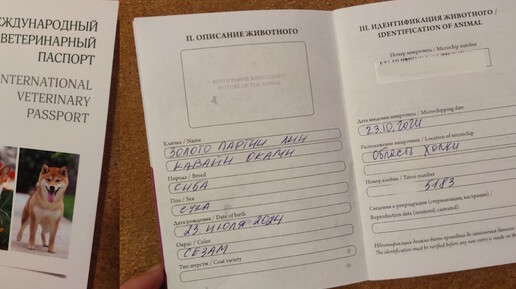 МЕЖДУНАРОДНЫЙ
ВЕТЕРИНАРНЫЙ
ПАСПОРТ
INTERNATIONAL
VETERINARY
PASSPORT
II. ОПИСАНИЕ ЖИВОТНОГО
ФОТОГРАФИЯ ЖИВОТНОГО
PICTURE OF THE ANIMAL
Кличка / Name
ЗОЛОТО ПАРТИИ ЛИН
КАВАИИ ОКАМИ
Порода / Breed
СИБА
Пол / Sex
СУКА
Дата рождения / Date of birth
23 ИЮЛЯ 2024
Окрас / Color
СЕЗАМ
Тип шерсти / Coat variety
III. ИДЕНТИФИКАЦИЯ ЖИВОТНОГО /
IDENTIFICATION OF ANIMAL
Номер микрочипа / Microchip number
Дата введения микрочипа / Microchipping date
23.10.2024
Расположение микрочипа / Location of microchip
Область холки
Номер клейма / Tattoo number
5183
Сведения о репродукции (стерилизация, кастрация) /
Reproduction data (neutered, castrated)
Идентификация должна быть проведена до занесения
The identification must be verified before any new entry is made on the